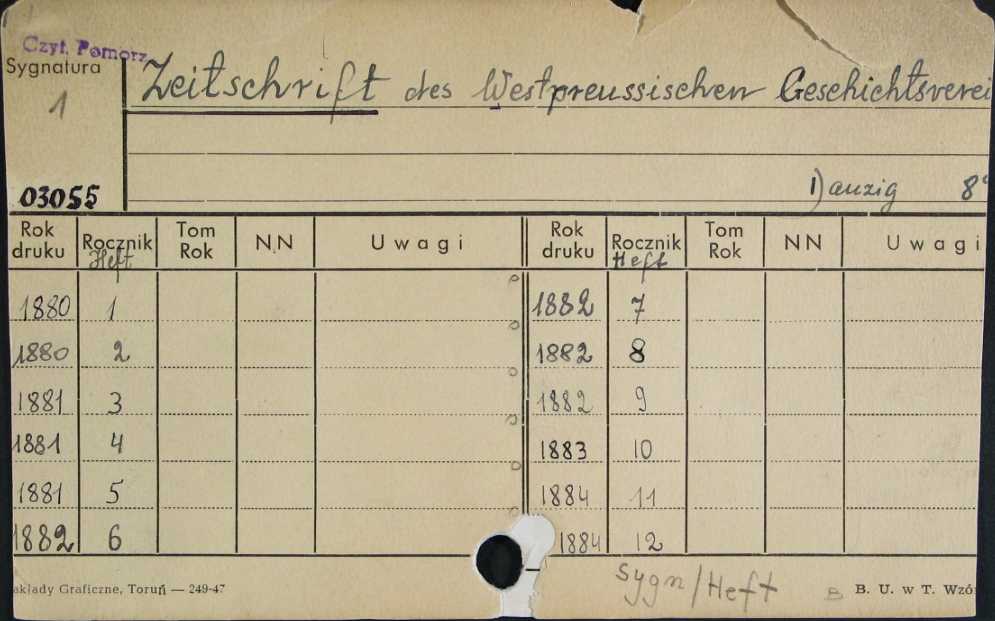 Czyt. Pomorz.
Sygnatura
1
Zeitschrift des Westpreussischen Geschichtsverei
03055
Danzig 8°
Rok druku Rocznik Heft Tom Rok NN Uwagi Rok druku Rocznik Heft Tom Rok NN Uwagi
1880 1 1882 7
1880 2 1882 8
1881 3 1882 9
1881 4 1883 10
1881 5 1884 11
1882 6 1884 12
akłady Graficzne, Toruń — 249-47
Sygn/Heft
B B. U. w T. Wzó